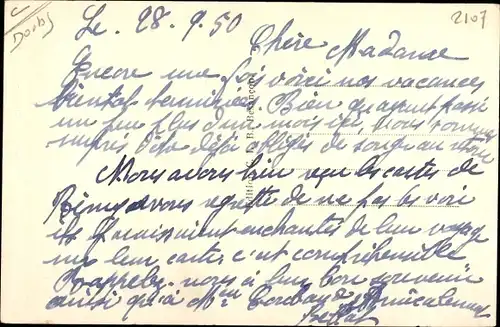 Doubs
2107
Le. 28. 9. 50
Chère Madame
Encore une fois voici nos vacances
bientot terminées. Bien qu'ayant passé
un peu plus d'un mois ici, nous sommes
déjà obligés de songer au retour
Nous avons bien reçu les cartes de
Rémy avons regretté de ne pas les voir
ils paraissaient enchantés de leur voyage
sur leur cartes c'est compréhensible
Rappelez-nous à leur bon souvenir
ainsi qu'à Mme